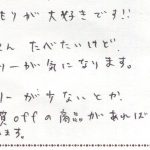 もりが大好きです!!
さん たべたいけど
リーが気になります。
リーが少ないとか、
質offの商品があれば
ます。